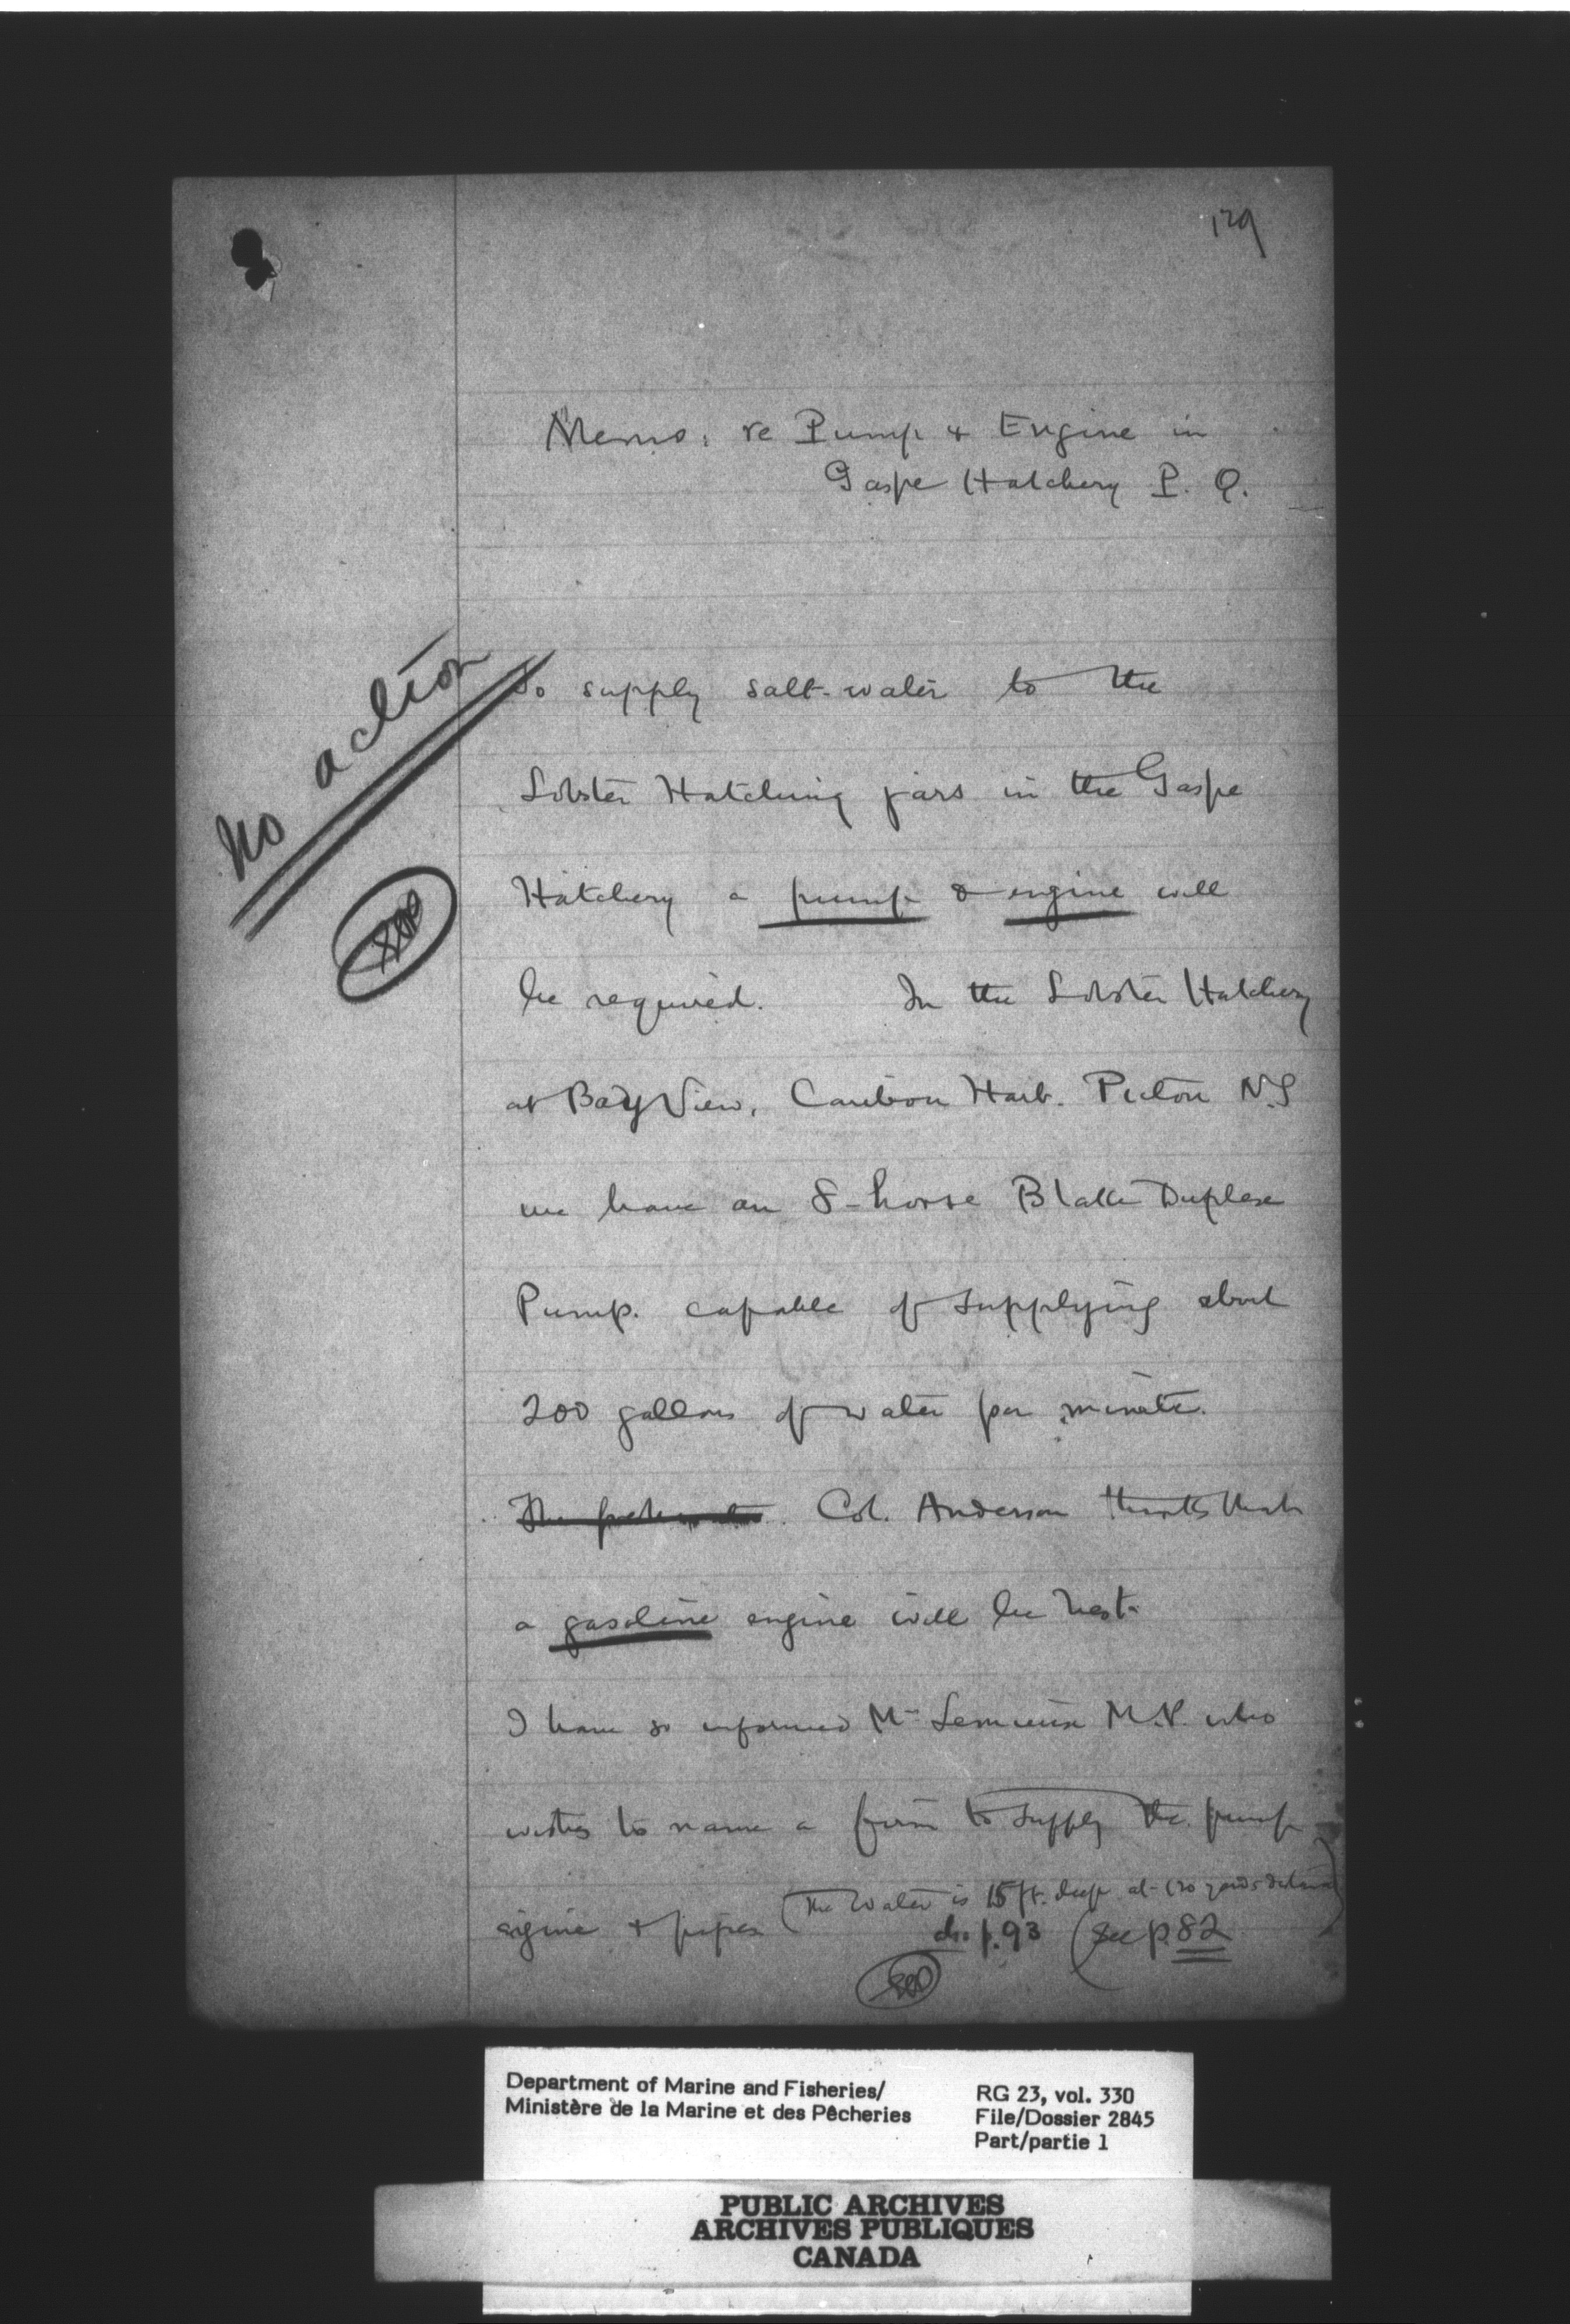 129
Memo: re Pump & Engine in
Gaspe Hatchery P. Q.
No action
To supply salt-water to the
Lobster Hatching jars in the Gaspe
Hatchery a pump & engine will
be required. In the Lobster Hatchery
at Bay View, Caribou Harb. Pictou N.S
we have an 8-horse Blake Duplex
Pump. capable of supplying about
200 gallons of water per minute.
The fresh water Col. Anderson thinks that
a gasoline engine will be best.
I have so informed Mr Lemieux M.P. who
wishes to name a firm to supply the pump
engine & pipes (The water is 15 ft. deep at 120 yards distance)
do. p. 93 (See p. 82
Department of Marine and Fisheries/
Ministère de la Marine et des Pêcheries
RG 23, vol. 330
File/Dossier 2845
Part/partie 1
PUBLIC ARCHIVES
ARCHIVES PUBLIQUES
CANADA